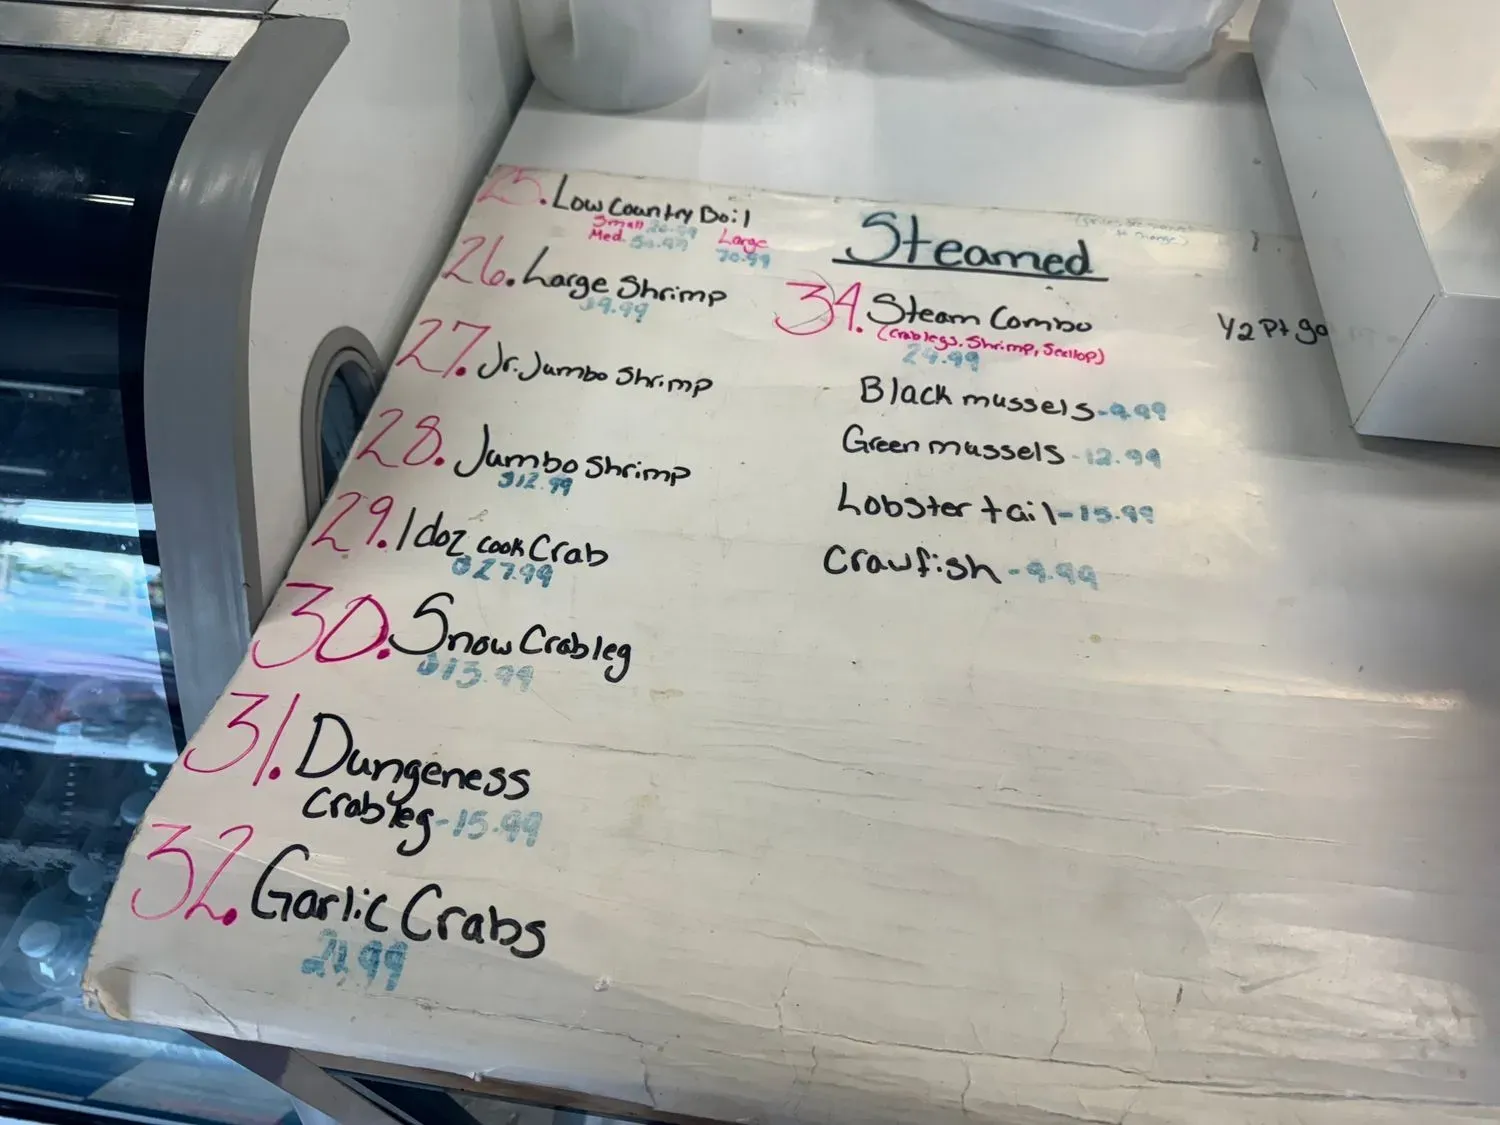 25. Low Country Boil
Small Large
Med. 70.99
26. Large Shrimp
9.99
27. Jr. Jumbo Shrimp
28. Jumbo Shrimp
$12.99
29. 1 doz cook Crab
$27.99
30. Snow Crab leg
$13.99
31. Dungeness
Crab leg - 15.99
32. Garlic Crabs
Steamed
34. Steam Combo
(Crab legs, Shrimp, Scallop)
24.99
Black mussels - 9.99
Green mussels - 12.99
Lobster tail - 15.99
Crawfish - 9.99
1/2 Pt go